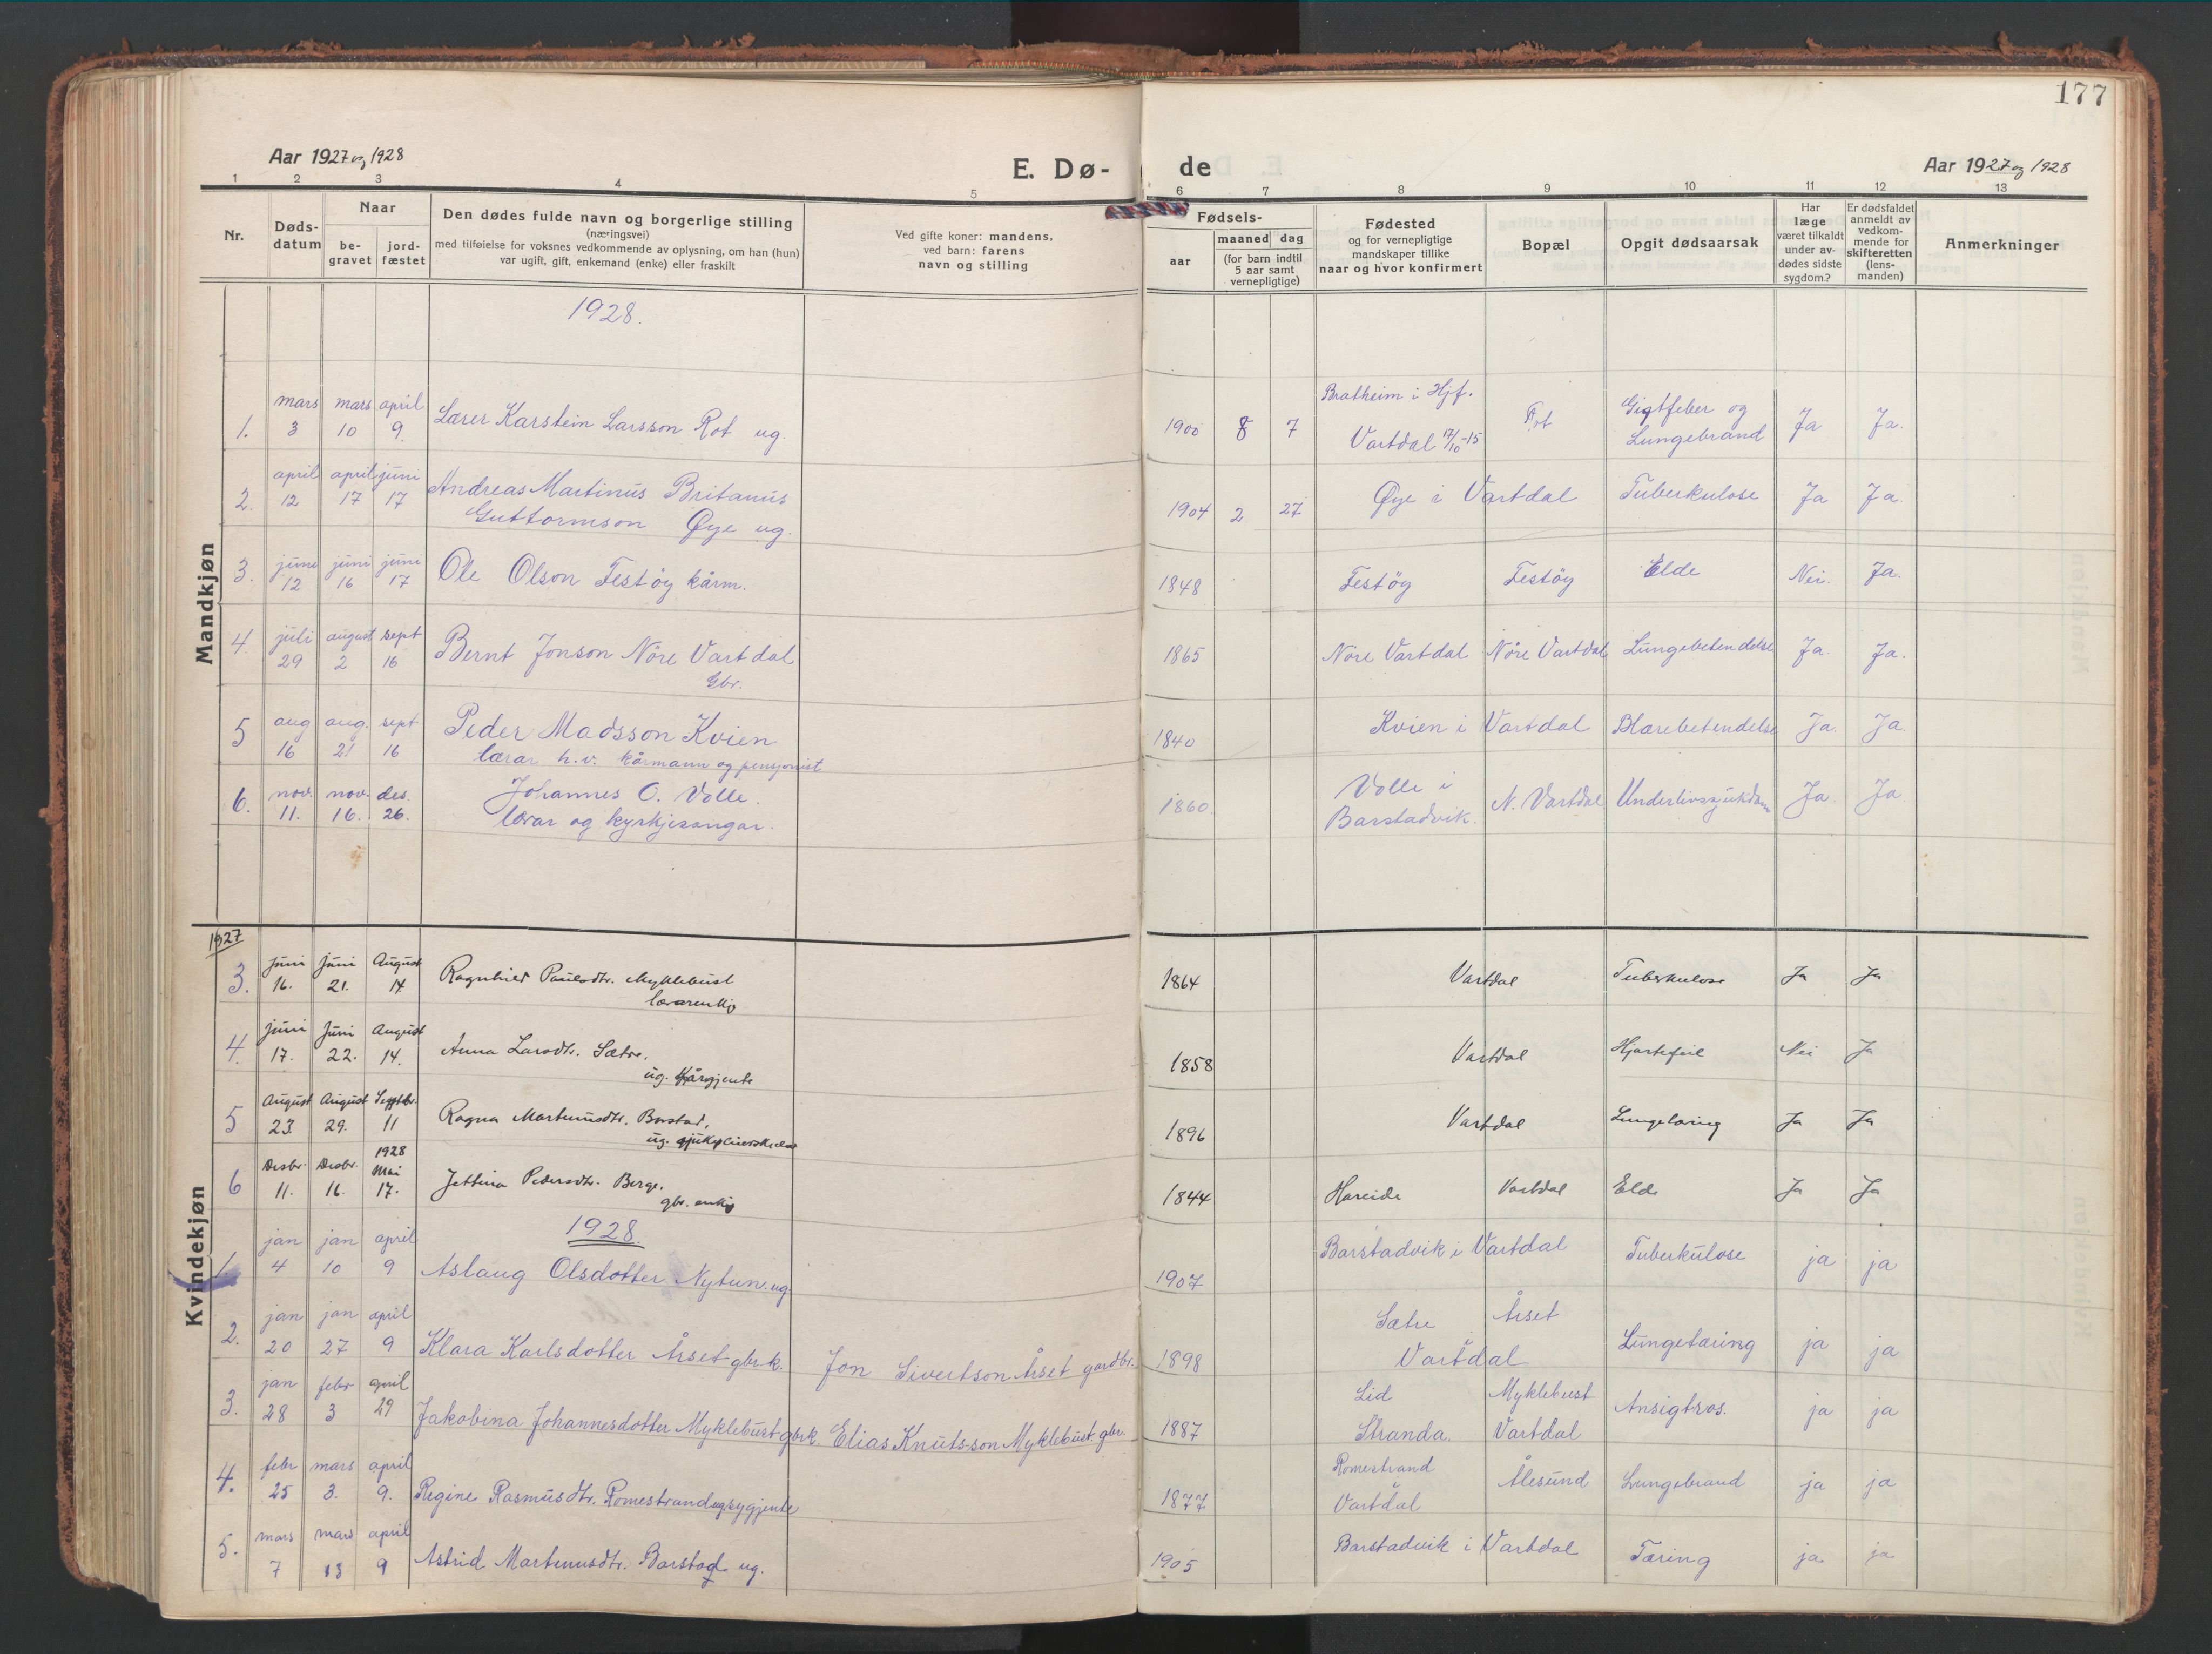 177
Aar 1927 og 1928
E. Dø-
de
Aar 1927 og 1928
1 2 3 4 5 6 7 8 9 10 11 12 13
Nr.
Døds-
datum
Naar
be-
gravet
jord-
fæstet
Den dødes fulde navn og borgerlige stilling
(næringsvei)
med tilføielse for voksnes vedkommende av oplysning, om han (hun)
var ugift, gift, enkemand (enke) eller fraskilt
Ved gifte koner: mandens,
ved barn: farens
navn og stilling
Fødsels-
aar
maaned dag
(for barn indtil
5 aar samt
vernepligtige)
Fødested
og for vernepligtige
mandskaper tillike
naar og hvor konfirmert
Bopæl
Opgit dødsaarsak
Har
læge
været tilkaldt
under av-
dødes sidste
sygdom?
Er dødsfaldet
anmeldt av
vedkom-
mende for
skifteretten
(lens-
manden)
Anmerkninger
Mandkjøn
1928.
mars mars april Bratheim i Hjf.
1. 3 10 9 Lærer Karstein Larsson Rot ug. 1900 8 7 Vartdal 17/10-15 Rot Gigtfeber og Lungebrand Ja Ja.
april april juni
2. 12 17 17 Andreas Martinus Britanus
Guttormson Øye ug. 1904 2 27 Øye i Vartdal Tuberkulose Ja Ja
juni juni juni
3. 12 16 17 Ole Olson Festöy kårm. 1848 Festöy Festöy Elde Nei. Ja.
juli august sept
4. 29 2 16 Bernt Jonson Nöre Vartdal
Gbr. 1865 Nöre Vartdal Nöre Vartdal Lungebetendelse Ja. Ja.
aug aug. sept
5 16 21 16 Peder Madsson Kvien
lærar h.v. kårmann og pensjonist 1840 Kvien i Vartdal Blærebetendelse Ja. Ja
nov. nov. des.
6. 11. 16. 26. Johannes O. Volle.
lærar og kyrkjesongar. 1860 Volle i
Barstadvik. N. Vartdal Underlivssjukdom Ja. Ja
Kvindekjøn
1927
Juni Juni August
3. 16. 21. 14 Ragnhild Paulsdtr. Myklebust
lærarenkje 1864 Vartdal Tuberkulose Ja Ja
Juni Juni August
4. 17. 22. 14. Anna Larsdtr. Sætre.
ug. kårgjente 1858 Vartdal Hjartefeil Nei Ja
August August Septbr.
5 23. 29. 11 Ragna Martinusdtr. Barstad,
ug. 1896 Vartdal Lungetæring Ja Ja
1928
Desbr. Desbr. Mai
6 11. 16. 17. Jettina Pedersdtr. Berge,
gbr. enkje 1844 Hareide Vartdal Elde Ja Ja
1928.
jan jan april
1. 4 10 9 Aslaug Olsdotter Nytun. ug. 1907 Barstadvik i Vartdal Tuberkulose ja ja
jan jan april
2. 20 27 9 Klara Karlsdotter Årset gbrk. Jon Sivertson Årset gardbr. 1898 Sætre Årset
Vartdal Lungetæring ja ja
jan febr april
3. 28 3 29 Jakobina Johannesdotter Myklebust gbrk. Elias Knuts-son Myklebust gbr. 1887 Lid Myklebust
Stranda. Vartdal Ansigtsros. ja ja
febr mars april
4. 25 3. 9. Regine Rasmusdtr. Romestrand ug. sygjente 1877 Romestrand
Vartdal Ålesund Lungebrand ja ja
mars mars april
5. 7 13 9 Astrid Martinusdtr. Barstad ug. 1905 Barstadvik i Vartdal Tæring ja ja